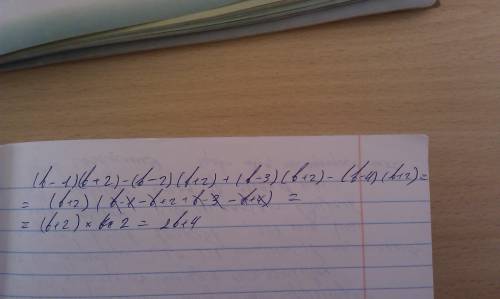 (b-1)(b+2)-(b-2)(b+2)+(b-3)(b+2)-(b-4)(b+2)=
= (b+2)(b-1-b+2+b-3-b+4) =
= (b+2)×2 = 2b+4